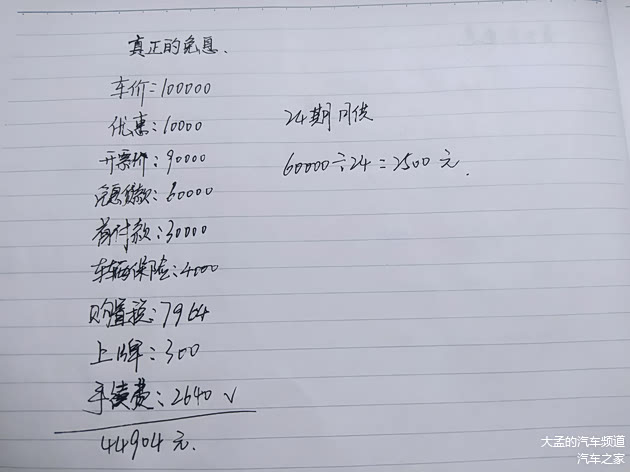 真正的免息.
车价=100000
优惠:10000
开票价:90000
免息贷款:60000
首付款:30000
车辆保险:4000
购置税:7964
上牌:300
手续费:2640 √
44904元.
24期月供
60000÷24=2500元.
大孟的汽车频道
汽车之家